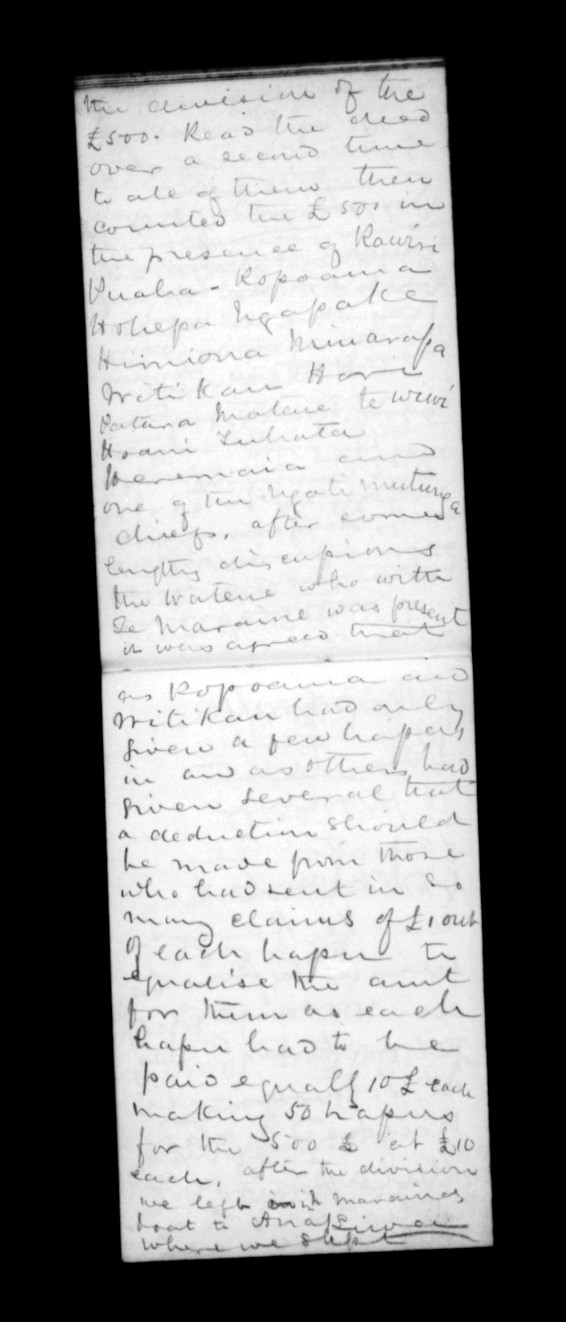 the division of the
£500. Read the deed
over a second time
to all of them then
counted the £500 in
the presence of Rawiri
Puaha - Ropoama
Hohepa Ngapake
Himiona Minarapa
Witikau Hori
Patara Matene te Wiwi
Hoani Tuhata
Heremaia and
one of the Ngati
chiefs, after some
lengthy discussions
the Watene who with
Te Maraine was present
it was agreed that
as Ropoama and
Witikau had only
given a few hapus
in and as others had
given several that
a deduction should
be made from those
who had sent in so
many claims of £1 out
of each hapu to
equalise the amt
for them as each
hapu had to be
paid equally 10£ each
making 50 hapus
for the 500 £ at £10
each, after the division
we left in Maraines
boat to
where we slept